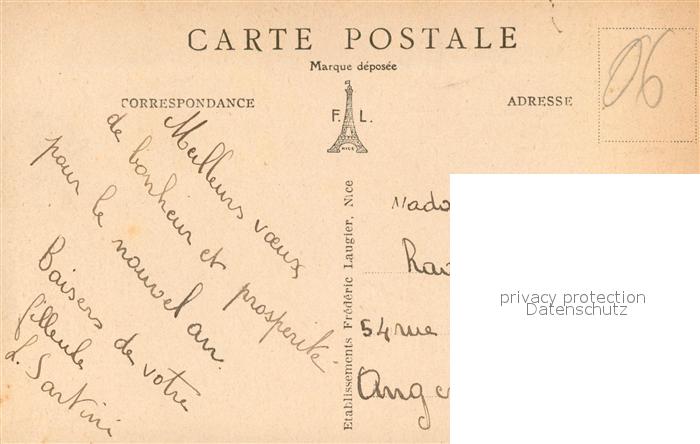 CARTE POSTALE
Marque déposée
CORRESPONDANCE
F. L.
NICE
ADRESSE
06
Meilleurs vœux
de bonheur et prosperité
pour le nouvel an.
Baisers de votre
filleule
L. Sartini
Etablissements Frédéric Laugier, Nice
Mado
54 rue
Ange
privacy protection
Datenschutz